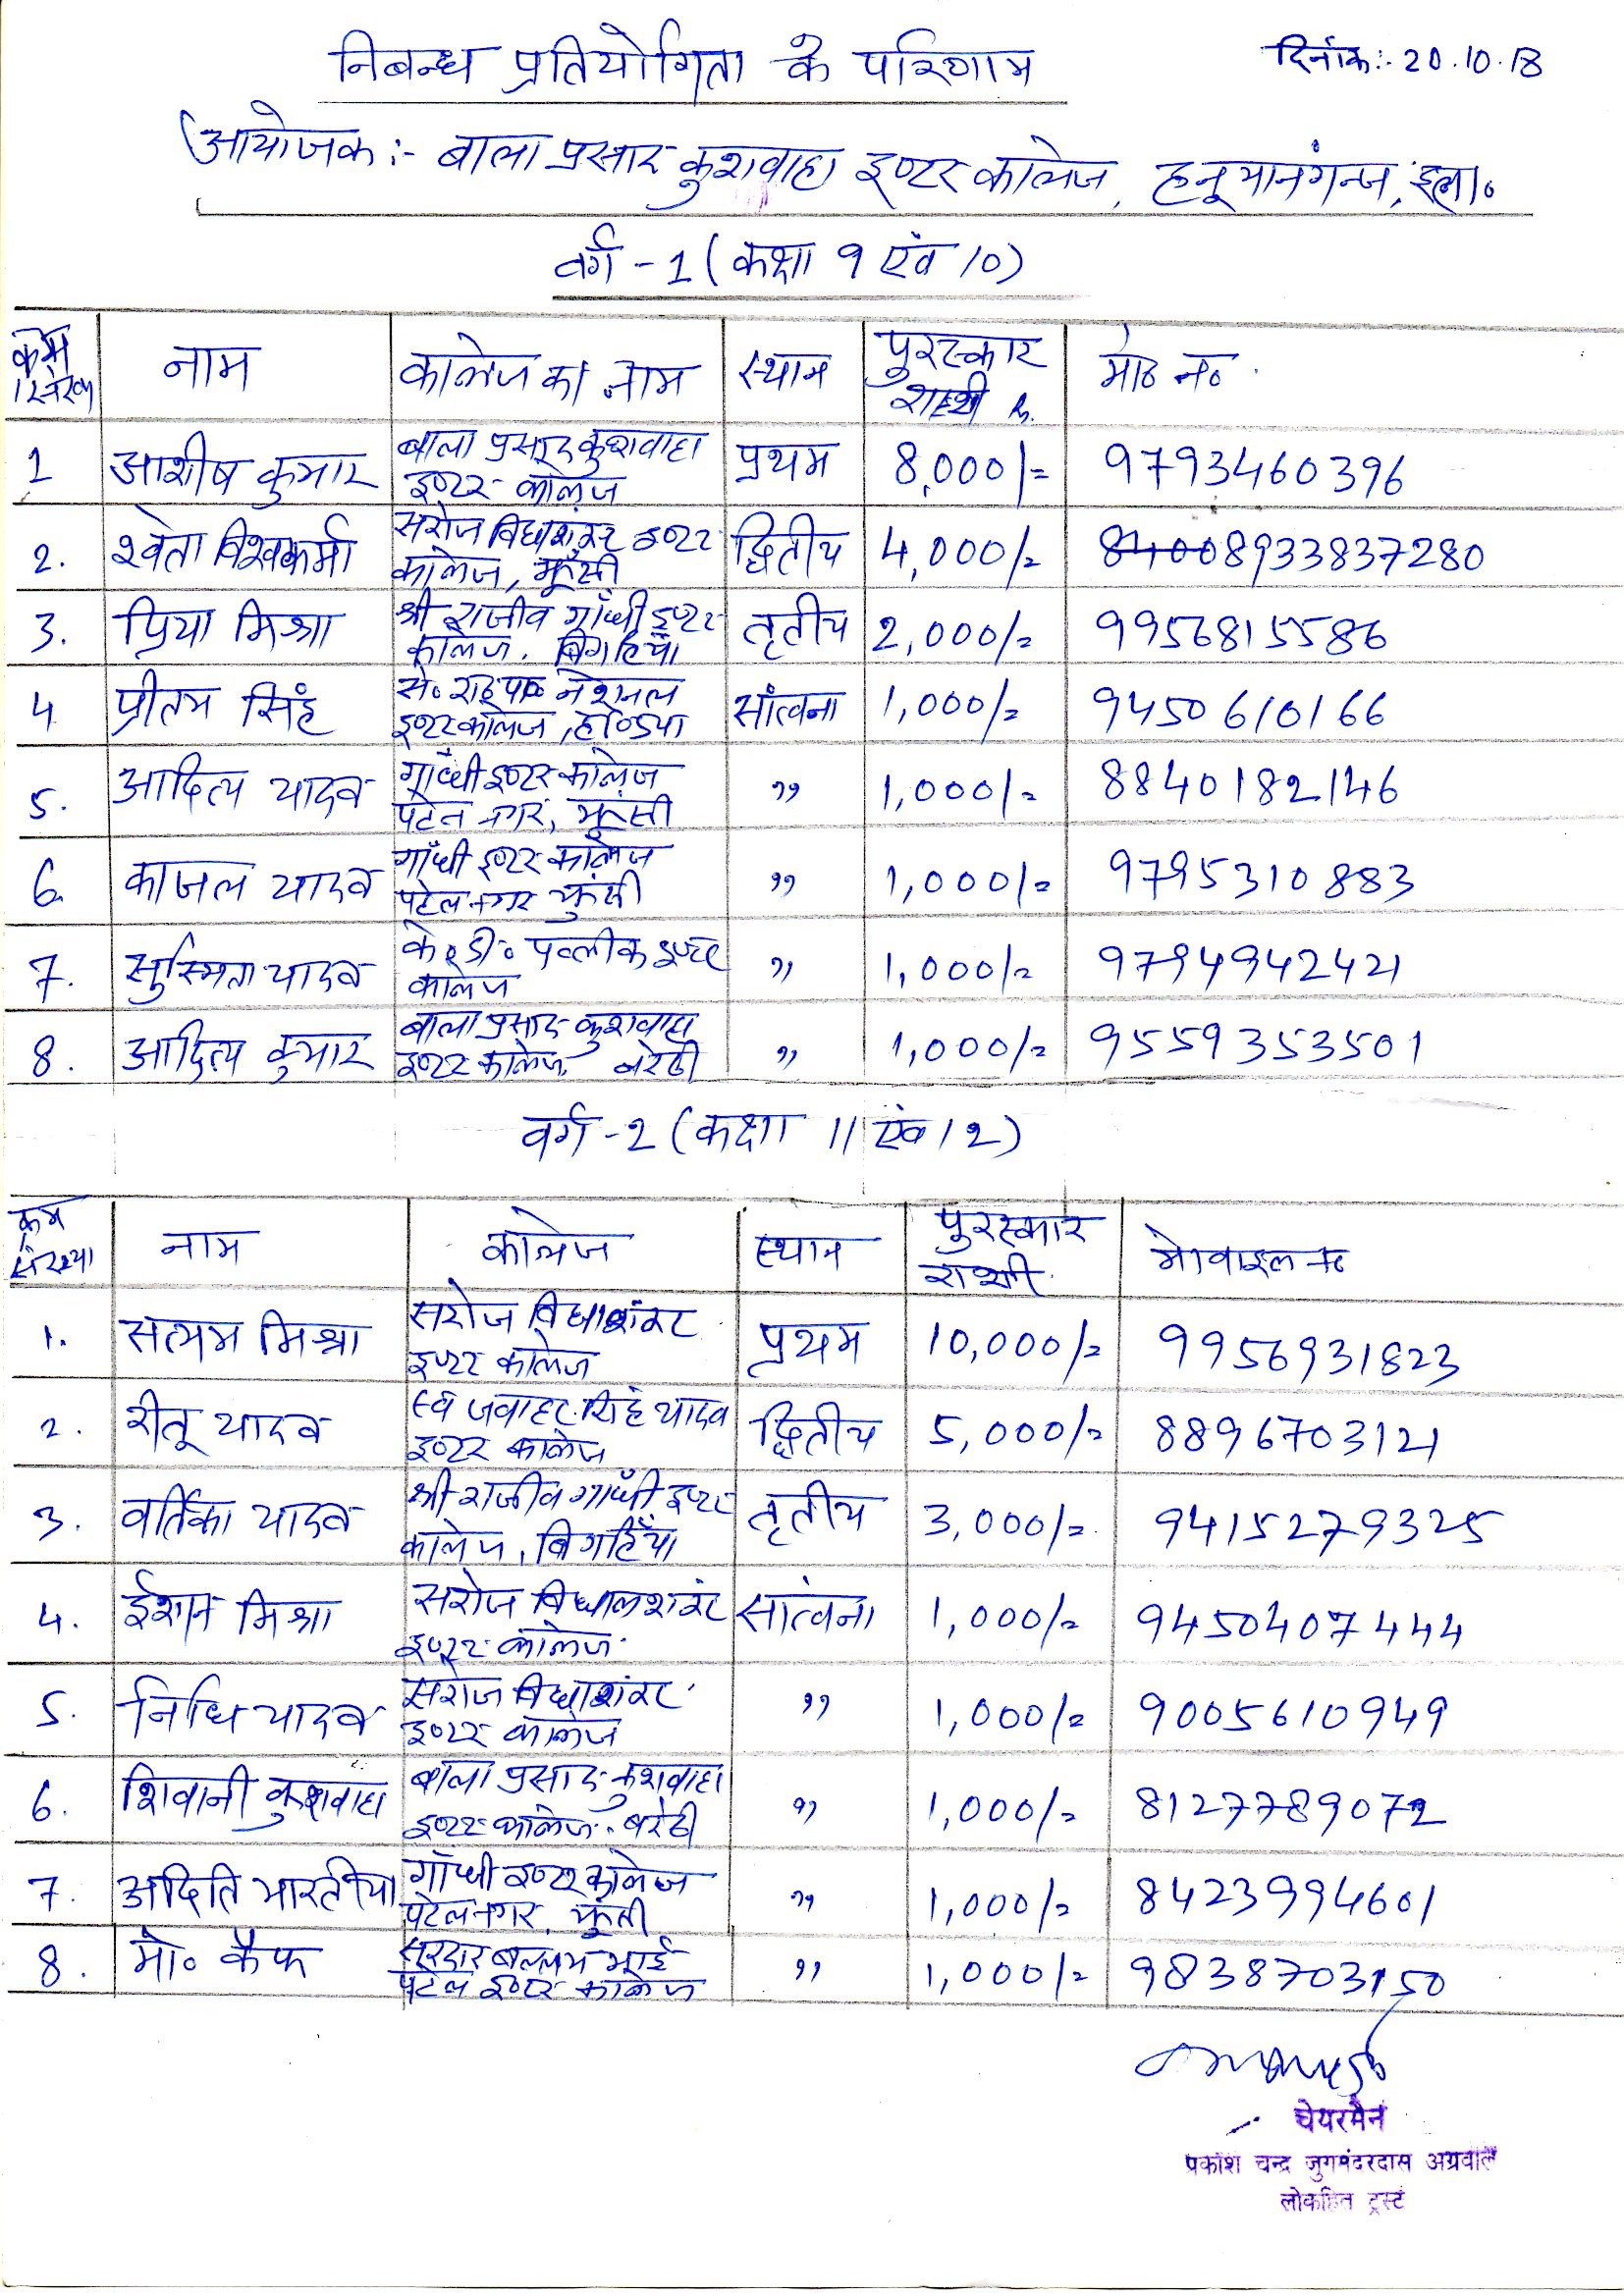 निबन्ध प्रतियोगिता के परिणाम
दिनांक:- 20.10.18
आयोजक:- बाला प्रसाद कुशवाहा इण्टर कालेज, हनूमानगंन्ज, इला०
वर्ग -1 (कक्षा 9 एंव 10)
क्रम संख्या नाम कालेज का नाम स्थान पुरस्कार राशी Rs. मो० न०
1 आशीष कुमार बाला प्रसाद कुशवाहा इण्टर कालेज प्रथम 8,000/= 9793460396
2. श्वेता विश्वकर्मा सरोज विद्याशंकर इण्टर कालेज, झूँसी द्वितीय 4,000/= 84008933837280
3. प्रिया मिश्रा श्री राजीव गाँधी इण्टर कालेज, बिगहियाँ तृतीय 2,000/= 9956815586
4 प्रीतम सिंह नेशनल इण्टर कालेज, हण्डिया सांत्वना 1,000/= 9450610166
5. आदित्य यादव गाँधी इण्टर कालेज पटेल नगर, झूंसी ,, 1,000/= 8840182146
6. काजल यादव गाँधी इण्टर कालेज पटेल नगर झूंसी ,, 1,000/= 9795310883
7. सुस्मिता यादव के० डी० पब्लीक इण्टर कालेज ,, 1,000/= 9794942421
8. आदित्य कुमार बाला प्रसाद कुशवाहा इण्टर कालेज, बरेठी ,, 1,000/= 9559353501
वर्ग -2 (कक्षा 11 एंव 12)
क्रम संख्या नाम कालेज स्थान पुरस्कार राशी मोवाइल न०
1. सत्यम मिश्रा सरोज विद्याशंकर इण्टर कालेज प्रथम 10,000/= 9956931823
2. रीतू यादव स्व जवाहर सिंह यादव इण्टर कालेज द्वितीय 5,000/= 8896703121
3. वर्तिका यादव श्री राजीव गाँधी इण्टर कालेज, बिगहियाँ तृतीय 3,000/= 9415279325
4. ईशान मिश्रा सरोज इण्टर कालेज सांत्वना 1,000/= 9450407444
5. निधि यादव सरोज विद्याशंकर इण्टर कालेज ,, 1,000/= 9005610949
6. शिवानी कुशवाहा बाला प्रसाद कुशवाहा इण्टर कालेज, बरेठी ,, 1,000/= 8127789072
7. अदिति भारतीया गाँधी इण्टर कालेज पटेल नगर, झूंसी ,, 1,000/= 8423994601
8. मो० कैफ सरदार बल्लभ भाई पटेल इण्टर कालेज ,, 1,000/= 9838703150
चेयरमैन
प्रकाश चन्द्र जुगमंदरदास अग्रवाल
लोकहित ट्रस्ट